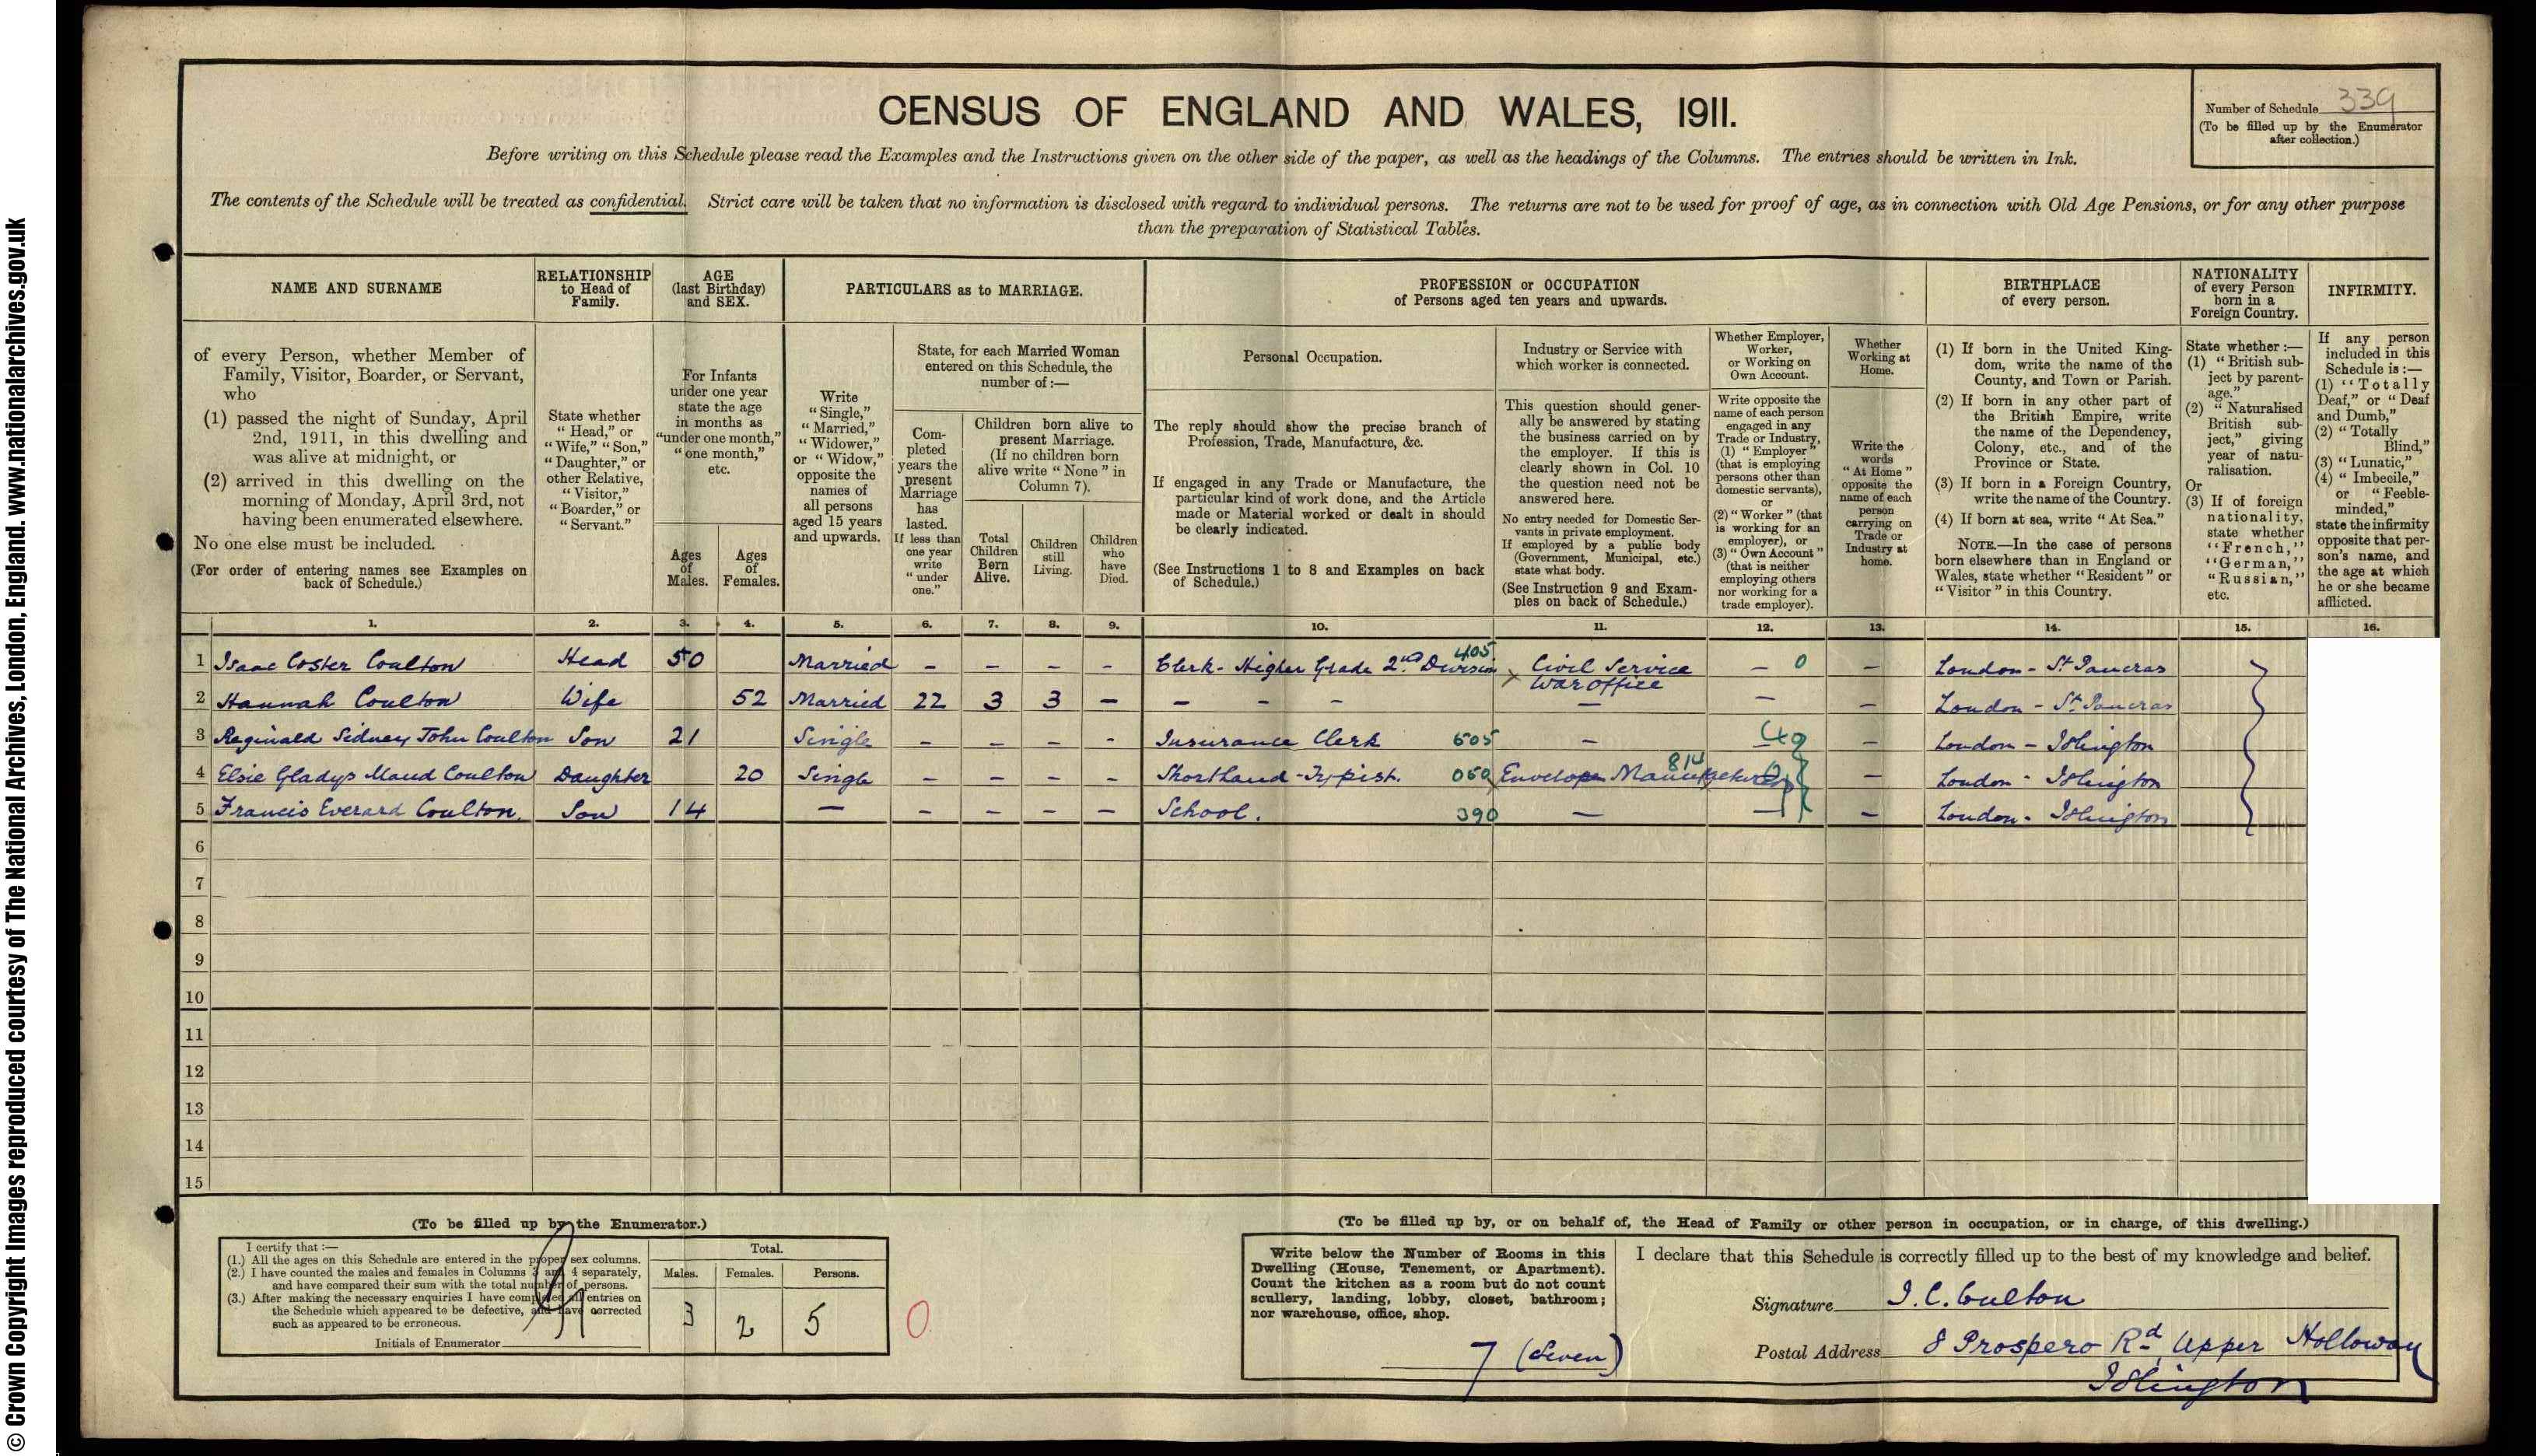 © Crown Copyright Images reproduced courtesy of The National Archives, London, England. www.nationalarchives.gov.uk
CENSUS OF ENGLAND AND WALES, 1911.
Number of Schedule 339
(To be filled up by the Enumerator
after collection.)
Before writing on this Schedule please read the Examples and the Instructions given on the other side of the paper, as well as the headings of the Columns. The entries should be written in Ink.
The contents of the Schedule will be treated as confidential. Strict care will be taken that no information is disclosed with regard to individual persons. The returns are not to be used for proof of age, as in connection with Old Age Pensions, or for any other purpose
than the preparation of Statistical Tables.
NAME AND SURNAME
of every Person, whether Member of
Family, Visitor, Boarder, or Servant,
who
(1) passed the night of Sunday, April
2nd, 1911, in this dwelling and
was alive at midnight, or
(2) arrived in this dwelling on the
morning of Monday, April 3rd, not
having been enumerated elsewhere.
No one else must be included.
(For order of entering names see Examples on
back of Schedule.)
RELATIONSHIP
to Head of
Family.
State whether
"Head," or
"Wife," "Son,"
"Daughter," or
other Relative,
"Visitor,"
"Boarder," or
"Servant."
AGE
(last Birthday)
and SEX.
For Infants
under one year
state the age
in months as
"under one month,"
"one month,"
etc.
Ages
of
Males.
Ages
of
Females.
PARTICULARS as to MARRIAGE.
Write
"Single,"
"Married,"
"Widower,"
or "Widow,"
opposite the
names of
all persons
aged 15 years
and upwards.
State, for each Married Woman
entered on this Schedule, the
number of:—
Com-
pleted
years the
present
Marriage
has
lasted.
If less than
one year
write
"under
one."
Children born alive to
present Marriage.
(If no children born
alive write "None" in
Column 7).
Total
Children
Born
Alive.
Children
still
Living.
Children
who
have
Died.
PROFESSION or OCCUPATION
of Persons aged ten years and upwards.
Personal Occupation.
The reply should show the precise branch of
Profession, Trade, Manufacture, &c.
If engaged in any Trade or Manufacture, the
particular kind of work done, and the Article
made or Material worked or dealt in should
be clearly indicated.
(See Instructions 1 to 8 and Examples on back
of Schedule.)
Industry or Service with
which worker is connected.
This question should gener-
ally be answered by stating
the business carried on by
the employer. If this is
clearly shown in Col. 10
the question need not be
answered here.
No entry needed for Domestic Ser-
vants in private employment.
If employed by a public body
(Government, Municipal, etc.)
state what body.
(See Instruction 9 and Exam-
ples on back of Schedule.)
Whether Employer,
Worker,
or Working on
Own Account.
Write opposite the
name of each person
engaged in any
Trade or Industry,
(1) "Employer"
(that is employing
persons other than
domestic servants),
or
(2) "Worker" (that
is working for an
employer), or
(3) "Own Account"
(that is neither
employing others
nor working for a
trade employer).
Whether
Working at
Home.
Write the
words
"At Home"
opposite the
name of each
person
carrying on
Trade or
Industry at
home.
BIRTHPLACE
of every person.
(1) If born in the United King-
dom, write the name of the
County, and Town or Parish.
(2) If born in any other part of
the British Empire, write
the name of the Dependency,
Colony, etc., and of the
Province or State.
(3) If born in a Foreign Country,
write the name of the Country.
(4) If born at sea, write "At Sea."
NOTE.—In the case of persons
born elsewhere than in England or
Wales, state whether "Resident" or
"Visitor" in this Country.
NATIONALITY
of every Person
born in a
Foreign Country.
State whether:—
(1) "British sub-
ject by parent-
age."
(2) "Naturalised
British sub-
ject," giving
year of natu-
ralisation.
Or
(3) If of foreign
nationality,
state whether
"French,"
"German,"
"Russian,"
etc.
INFIRMITY.
If any person
included in this
Schedule is:—
(1) "Totally
Deaf," or "Deaf
and Dumb,"
(2) "Totally
Blind,"
(3) "Lunatic,"
(4) "Imbecile,"
or "Feeble-
minded,"
state the infirmity
opposite that per-
son's name, and
the age at which
he or she became
afflicted.
1. 2. 3. 4. 5. 6. 7. 8. 9. 10. 11. 12. 13. 14. 15. 16.
1 Isaac Coster Coulton Head 50 Married – – – – Clerk - Higher Grade 2nd Division 405 Civil Service – 0 – London - St Pancras
War Office
2 Hannah Coulton Wife 52 Married 22 3 3 – – – – – – – London - St Pancras
3 Reginald Sidney John Coulton Son 21 Single – – – – Insurance Clerk 605 – – London - Islington
4 Elsie Gladys Maud Coulton Daughter 20 Single – – – – Shorthand-Typist. 050 Envelope Manufacturers 814 – London - Islington
5 Francis Everard Coulton. Son 14 – – – – – School. 390 – – – London - Islington
6
7
8
9
10
11
12
13
14
15
(To be filled up by the Enumerator.)
I certify that:—
(1.) All the ages on this Schedule are entered in the proper sex columns.
(2.) I have counted the males and females in Columns 3 and 4 separately,
and have compared their sum with the total number of persons.
(3.) After making the necessary enquiries I have completed all entries on
the Schedule which appeared to be defective, and have corrected
such as appeared to be erroneous.
Initials of Enumerator
Total.
Males. Females. Persons.
3 2 5
0
(To be filled up by, or on behalf of, the Head of Family or other person in occupation, or in charge, of this dwelling.)
Write below the Number of Rooms in this
Dwelling (House, Tenement, or Apartment).
Count the kitchen as a room but do not count
scullery, landing, lobby, closet, bathroom;
nor warehouse, office, shop.
7 (Seven)
I declare that this Schedule is correctly filled up to the best of my knowledge and belief.
Signature I. C. Coulton
Postal Address 8 Prospero Rd Upper Holloway
Islington